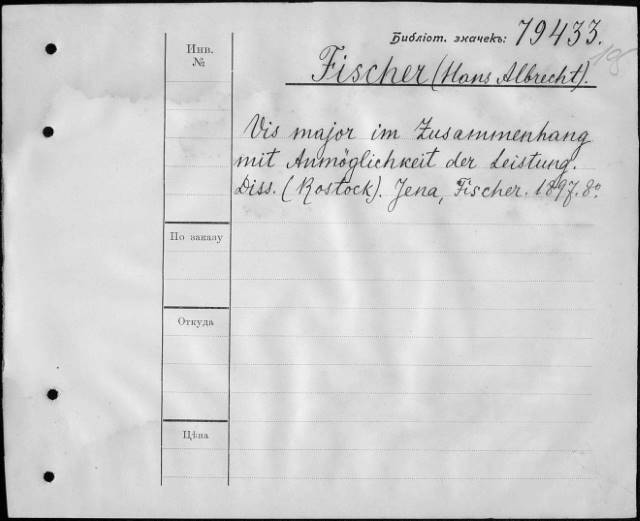 Библіот. значекъ: 79433.
Инв. №
Fischer (Hans Albrecht).
Vis major im Zusammenhang
mit Unmöglichkeit der Leistung.
Diss. (Rostock). Jena, Fischer. 1897. 8º.
По заказу
Откуда
Цѣна